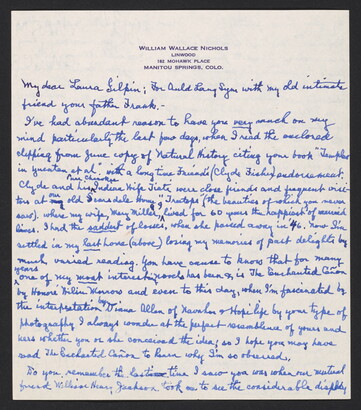 WILLIAM WALLACE NICHOLS
LINWOOD
182 MOHAWK PLACE
MANITOU SPRINGS, COLO.
My dear Laura Gilpin; For Auld Lang Syne with my old intimate
friend your father Frank.-
I've had abundant reason to have you very much on my
mind particularly the last few days, when I read the enclosed
clipping from June copy of Natural History citing your book "Temples
in Yucatan et al." with a long time Friend's (Clyde Fisher) endorsement.
Clyde and his Indian Wife Tioty were close friends and frequent visi-
tors at my old Home, Treetops (the beauties of which you never
saw). where my wife, Mary Miller, lived for 60 years the happiest of married
lives. I had the saddest of losses, when she passed away in '46. Now I'm
settled in my last home (above) losing my memories of past delights by
much varied reading. You have cause to know that for many
years
one of my most interesting novels has been & is The Enchanted Cañon
by Honoré Willsie Morrow and even to this day, when I'm fascinated by
the interpretation by Diana Allen of Navaho & Hopi life by your type of
photography I always wonder at the perfect resemblance of yours and
hers whether you or she conceived the idea; so I hope you may have
read The Enchanted Cañon to learn why I'm so obsessed.
Do you remember the last time I saw you was when our mutual
friend William Henry Jackson took me to see the considerable display